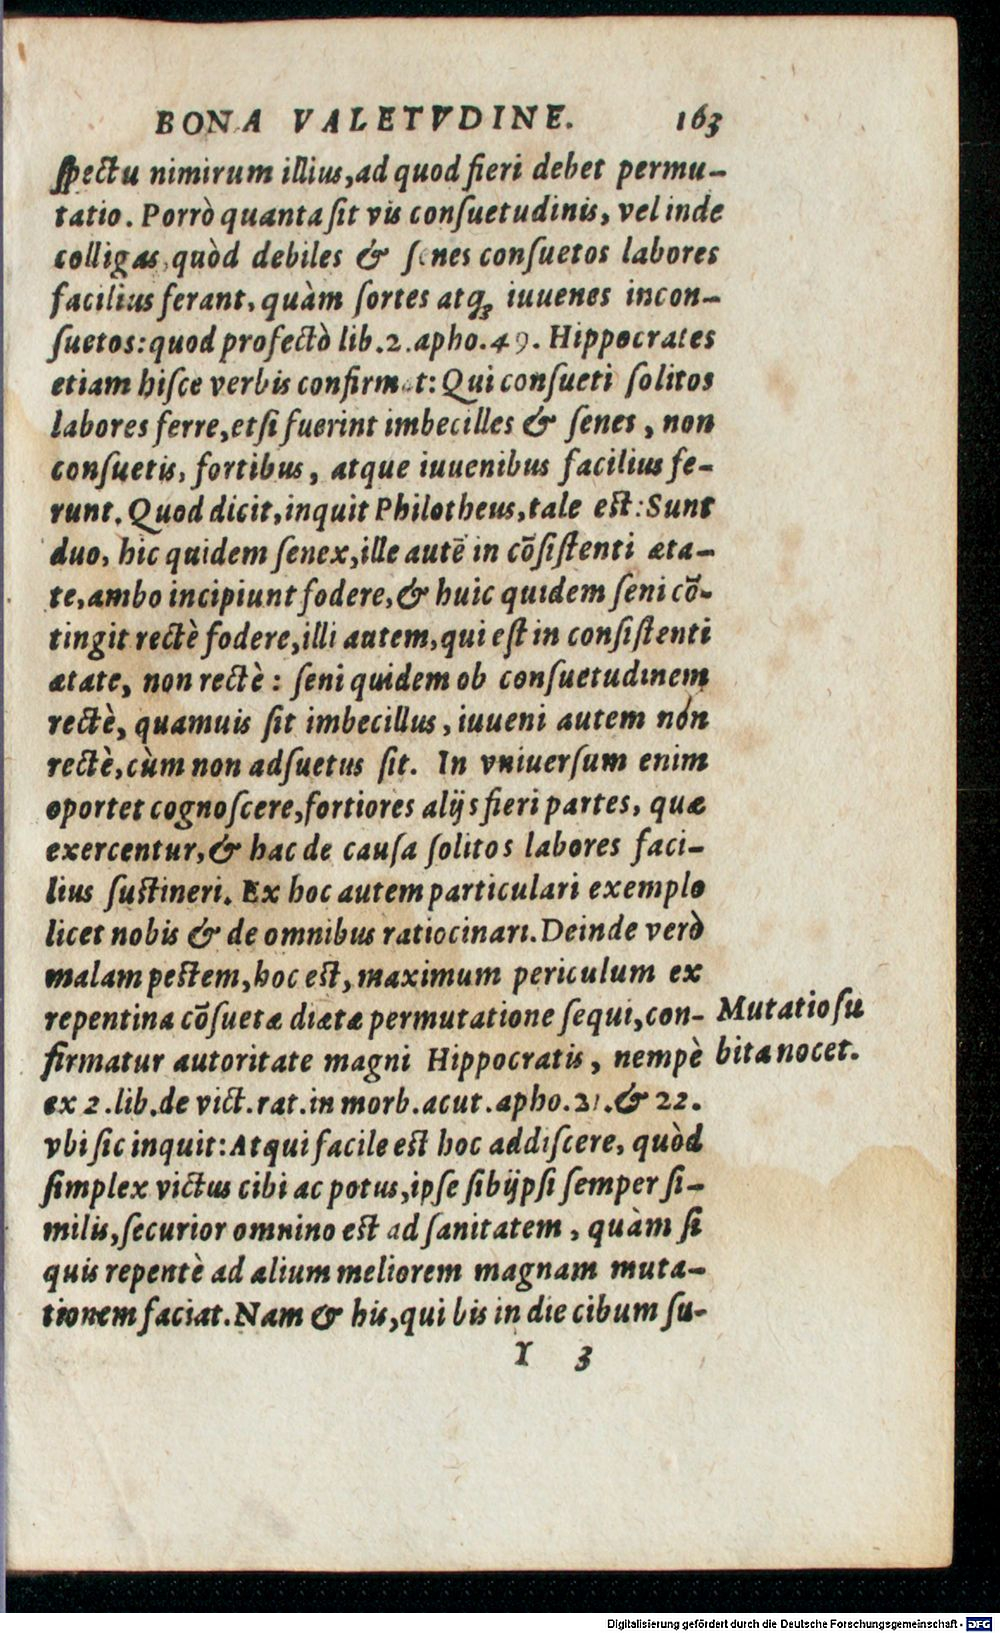 BONA VALETVDINE. 163
ſpectu nimirum illius, ad quod fieri debet permu-
tatio. Porrò quanta ſit vis conſuetudinis, vel inde
colligas, quòd debiles & ſenes conſuetos labores
facilius ferant, quàm fortes atq́ꝫ iuuenes incon-
ſuetos: quod profectò lib. 2. apho. 49. Hippocrates
etiam hiſce verbis confirmat: Qui conſueti ſolitos
labores ferre, etſi fuerint imbecilles & ſenes, non
conſuetis, fortibus, atque iuuenibus facilius fe-
runt. Quod dicit, inquit Philotheus, tale eſt: Sunt
duo, hic quidem ſenex, ille autē in cōſiſtenti æta-
te, ambo incipiunt fodere, & huic quidem ſeni cō-
tingit rectè fodere, illi autem, qui eſt in conſiſtenti
ætate, non rectè: ſeni quidem ob conſuetudinem
rectè, quamuis ſit imbecillus, iuueni autem non
rectè, cùm non adſuetus ſit. In vniuerſum enim
oportet cognoſcere, fortiores alijs fieri partes, quæ
exercentur, & hac de cauſa ſolitos labores faci-
lius ſuſtineri. Ex hoc autem particulari exemplo
licet nobis & de omnibus ratiocinari. Deinde verò
malam peſtem, hoc eſt, maximum periculum ex
repentina cōſuetæ diætæ permutatione ſequi, con-
firmatur autoritate magni Hippocratis, nempè
ex 2. lib. de vict. rat. in morb. acut. apho. 21. & 22.
vbi ſic inquit: Atqui facile eſt hoc addiſcere, quòd
ſimplex victus cibi ac potus, ipſe ſibijpſi ſemper ſi-
milis, ſecurior omnino eſt ad ſanitatem, quàm ſi
quis repentè ad alium meliorem magnam muta-
tionem faciat. Nam & his, qui bis in die cibum ſu-
Y 3
Mutatio ſu
bita nocet.
Digitalisierung gefördert durch die Deutsche Forschungsgemeinschaft - DFG